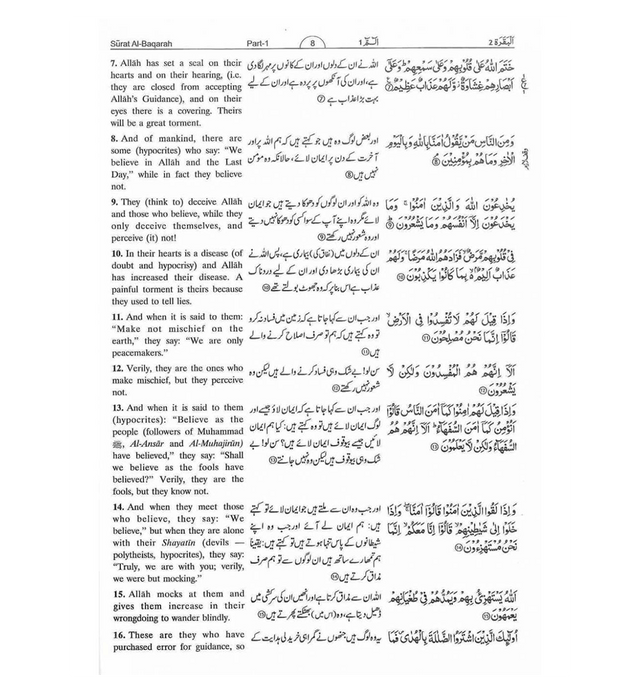 Sūrat Al-Baqarah Part-1 8 الٓـمّٓ ١ البَقَرَة ٢
7. Allāh has set a seal on their
hearts and on their hearing, (i.e.
they are closed from accepting
Allāh's Guidance), and on their
eyes there is a covering. Theirs
will be a great torment.
8. And of mankind, there are
some (hypocrites) who say: "We
believe in Allāh and the Last
Day," while in fact they believe
not.
9. They (think to) deceive Allāh
and those who believe, while they
only deceive themselves, and
perceive (it) not!
10. In their hearts is a disease (of
doubt and hypocrisy) and Allāh
has increased their disease. A
painful torment is theirs because
they used to tell lies.
11. And when it is said to them:
"Make not mischief on the
earth," they say: "We are only
peacemakers."
12. Verily, they are the ones who
make mischief, but they perceive
not.
13. And when it is said to them
(hypocrites): "Believe as the
people (followers of Muhammad
ﷺ, Al-Ansār and Al-Muhajirūn)
have believed," they say: "Shall
we believe as the fools have
believed?" Verily, they are the
fools, but they know not.
14. And when they meet those
who believe, they say: "We
believe," but when they are alone
with their Shayatīn (devils —
polytheists, hypocrites), they say:
"Truly, we are with you; verily,
we were but mocking."
15. Allāh mocks at them and
gives them increase in their
wrongdoing to wander blindly.
16. These are they who have
purchased error for guidance, so
اللہ نے ان کے دلوں اور ان کے کانوں پر مہر لگا دی
ہے، اور ان کی آنکھوں پر پردہ ہے اور ان کے لیے
بہت بڑا عذاب ہے ⑦
اور بعض لوگ وہ ہیں جو کہتے ہیں کہ ہم اللہ پر اور
آخرت کے دن پر ایمان لائے، حالانکہ وہ مومن
نہیں ہیں ⑧
وہ اللہ کو اور ان لوگوں کو دھوکا دیتے ہیں جو ایمان
لائے مگر وہ اپنے آپ کے سوا کسی کو دھوکا نہیں دیتے
اور وہ شعور نہیں رکھتے ⑨
ان کے دلوں میں (نفاق کی) بیماری ہے، پس اللہ نے
ان کی بیماری بڑھا دی اور ان کے لیے دردناک
عذاب ہے اس بنا پر کہ وہ جھوٹ بولتے تھے ⑩
اور جب ان سے کہا جاتا ہے کہ زمین میں فساد نہ کرو
تو وہ کہتے ہیں کہ ہم تو صرف اصلاح کرنے والے
ہیں ⑪
سن لو! بے شک وہی فساد کرنے والے ہیں لیکن وہ
شعور نہیں رکھتے ⑫
اور جب ان سے کہا جاتا ہے کہ ایمان لاؤ جیسے اور
لوگ ایمان لائے ہیں تو وہ کہتے ہیں: کیا ہم ایمان
لائیں جیسے بیوقوف ایمان لائے ہیں؟ سن لو! بے
شک وہی بیوقوف ہیں لیکن وہ نہیں جانتے ⑬
اور جب وہ ان سے ملتے ہیں جو ایمان لائے تو کہتے
ہیں: ہم ایمان لے آئے اور جب وہ اپنے
شیطانوں کے پاس تنہا ہوتے ہیں تو کہتے ہیں: یقیناً
ہم تمھارے ساتھ ہیں ان لوگوں سے تو ہم صرف
مذاق کرتے ہیں ⑭
اللہ ان سے مذاق کرتا ہے اور انھیں ان کی سرکشی میں
ڈھیل دیتا ہے، وہ (اس میں) بھٹکتے پھرتے ہیں ⑮
یہ وہ لوگ ہیں جنھوں نے گمراہی خرید لی ہدایت کے
خَتَمَ اللّٰهُ عَلٰى قُلُوْبِهِمْ وَعَلٰى سَمْعِهِمْ ؕ وَعَلٰٓى
اَبْصَارِهِمْ غِشَاوَةٌ ؗ وَّلَهُمْ عَذَابٌ عَظِيْمٌ ⑦
وَمِنَ النَّاسِ مَنْ يَّقُوْلُ اٰمَنَّا بِاللّٰهِ وَبِالْيَوْمِ
الْاٰخِرِ وَمَا هُمْ بِمُؤْمِنِيْنَ ⑧
يُخٰدِعُوْنَ اللّٰهَ وَالَّذِيْنَ اٰمَنُوْا ۚ وَمَا
يَخْدَعُوْنَ اِلَّآ اَنْفُسَهُمْ وَمَا يَشْعُرُوْنَ ⑨
فِيْ قُلُوْبِهِمْ مَّرَضٌ ۙ فَزَادَهُمُ اللّٰهُ مَرَضًا ۚ وَلَهُمْ
عَذَابٌ اَلِيْمٌۢ ۙ بِمَا كَانُوْا يَكْذِبُوْنَ ⑩
وَاِذَا قِيْلَ لَهُمْ لَا تُفْسِدُوْا فِي الْاَرْضِ ۙ
قَالُوْٓا اِنَّمَا نَحْنُ مُصْلِحُوْنَ ⑪
اَلَآ اِنَّهُمْ هُمُ الْمُفْسِدُوْنَ وَلٰكِنْ لَّا
يَشْعُرُوْنَ ⑫
وَاِذَا قِيْلَ لَهُمْ اٰمِنُوْا كَمَآ اٰمَنَ النَّاسُ قَالُوْٓا
اَنُؤْمِنُ كَمَآ اٰمَنَ السُّفَهَآءُ ؕ اَلَآ اِنَّهُمْ هُمُ
السُّفَهَآءُ وَلٰكِنْ لَّا يَعْلَمُوْنَ ⑬
وَاِذَا لَقُوا الَّذِيْنَ اٰمَنُوْا قَالُوْٓا اٰمَنَّا ۚ وَاِذَا
خَلَوْا اِلٰى شَيٰطِيْنِهِمْ ۙ قَالُوْٓا اِنَّا مَعَكُمْ ۙ اِنَّمَا
نَحْنُ مُسْتَهْزِءُوْنَ ⑭
اَللّٰهُ يَسْتَهْزِئُ بِهِمْ وَيَمُدُّهُمْ فِيْ طُغْيَانِهِمْ
يَعْمَهُوْنَ ⑮
اُولٰٓئِكَ الَّذِيْنَ اشْتَرَوُا الضَّلٰلَةَ بِالْهُدٰى ۪ فَمَا